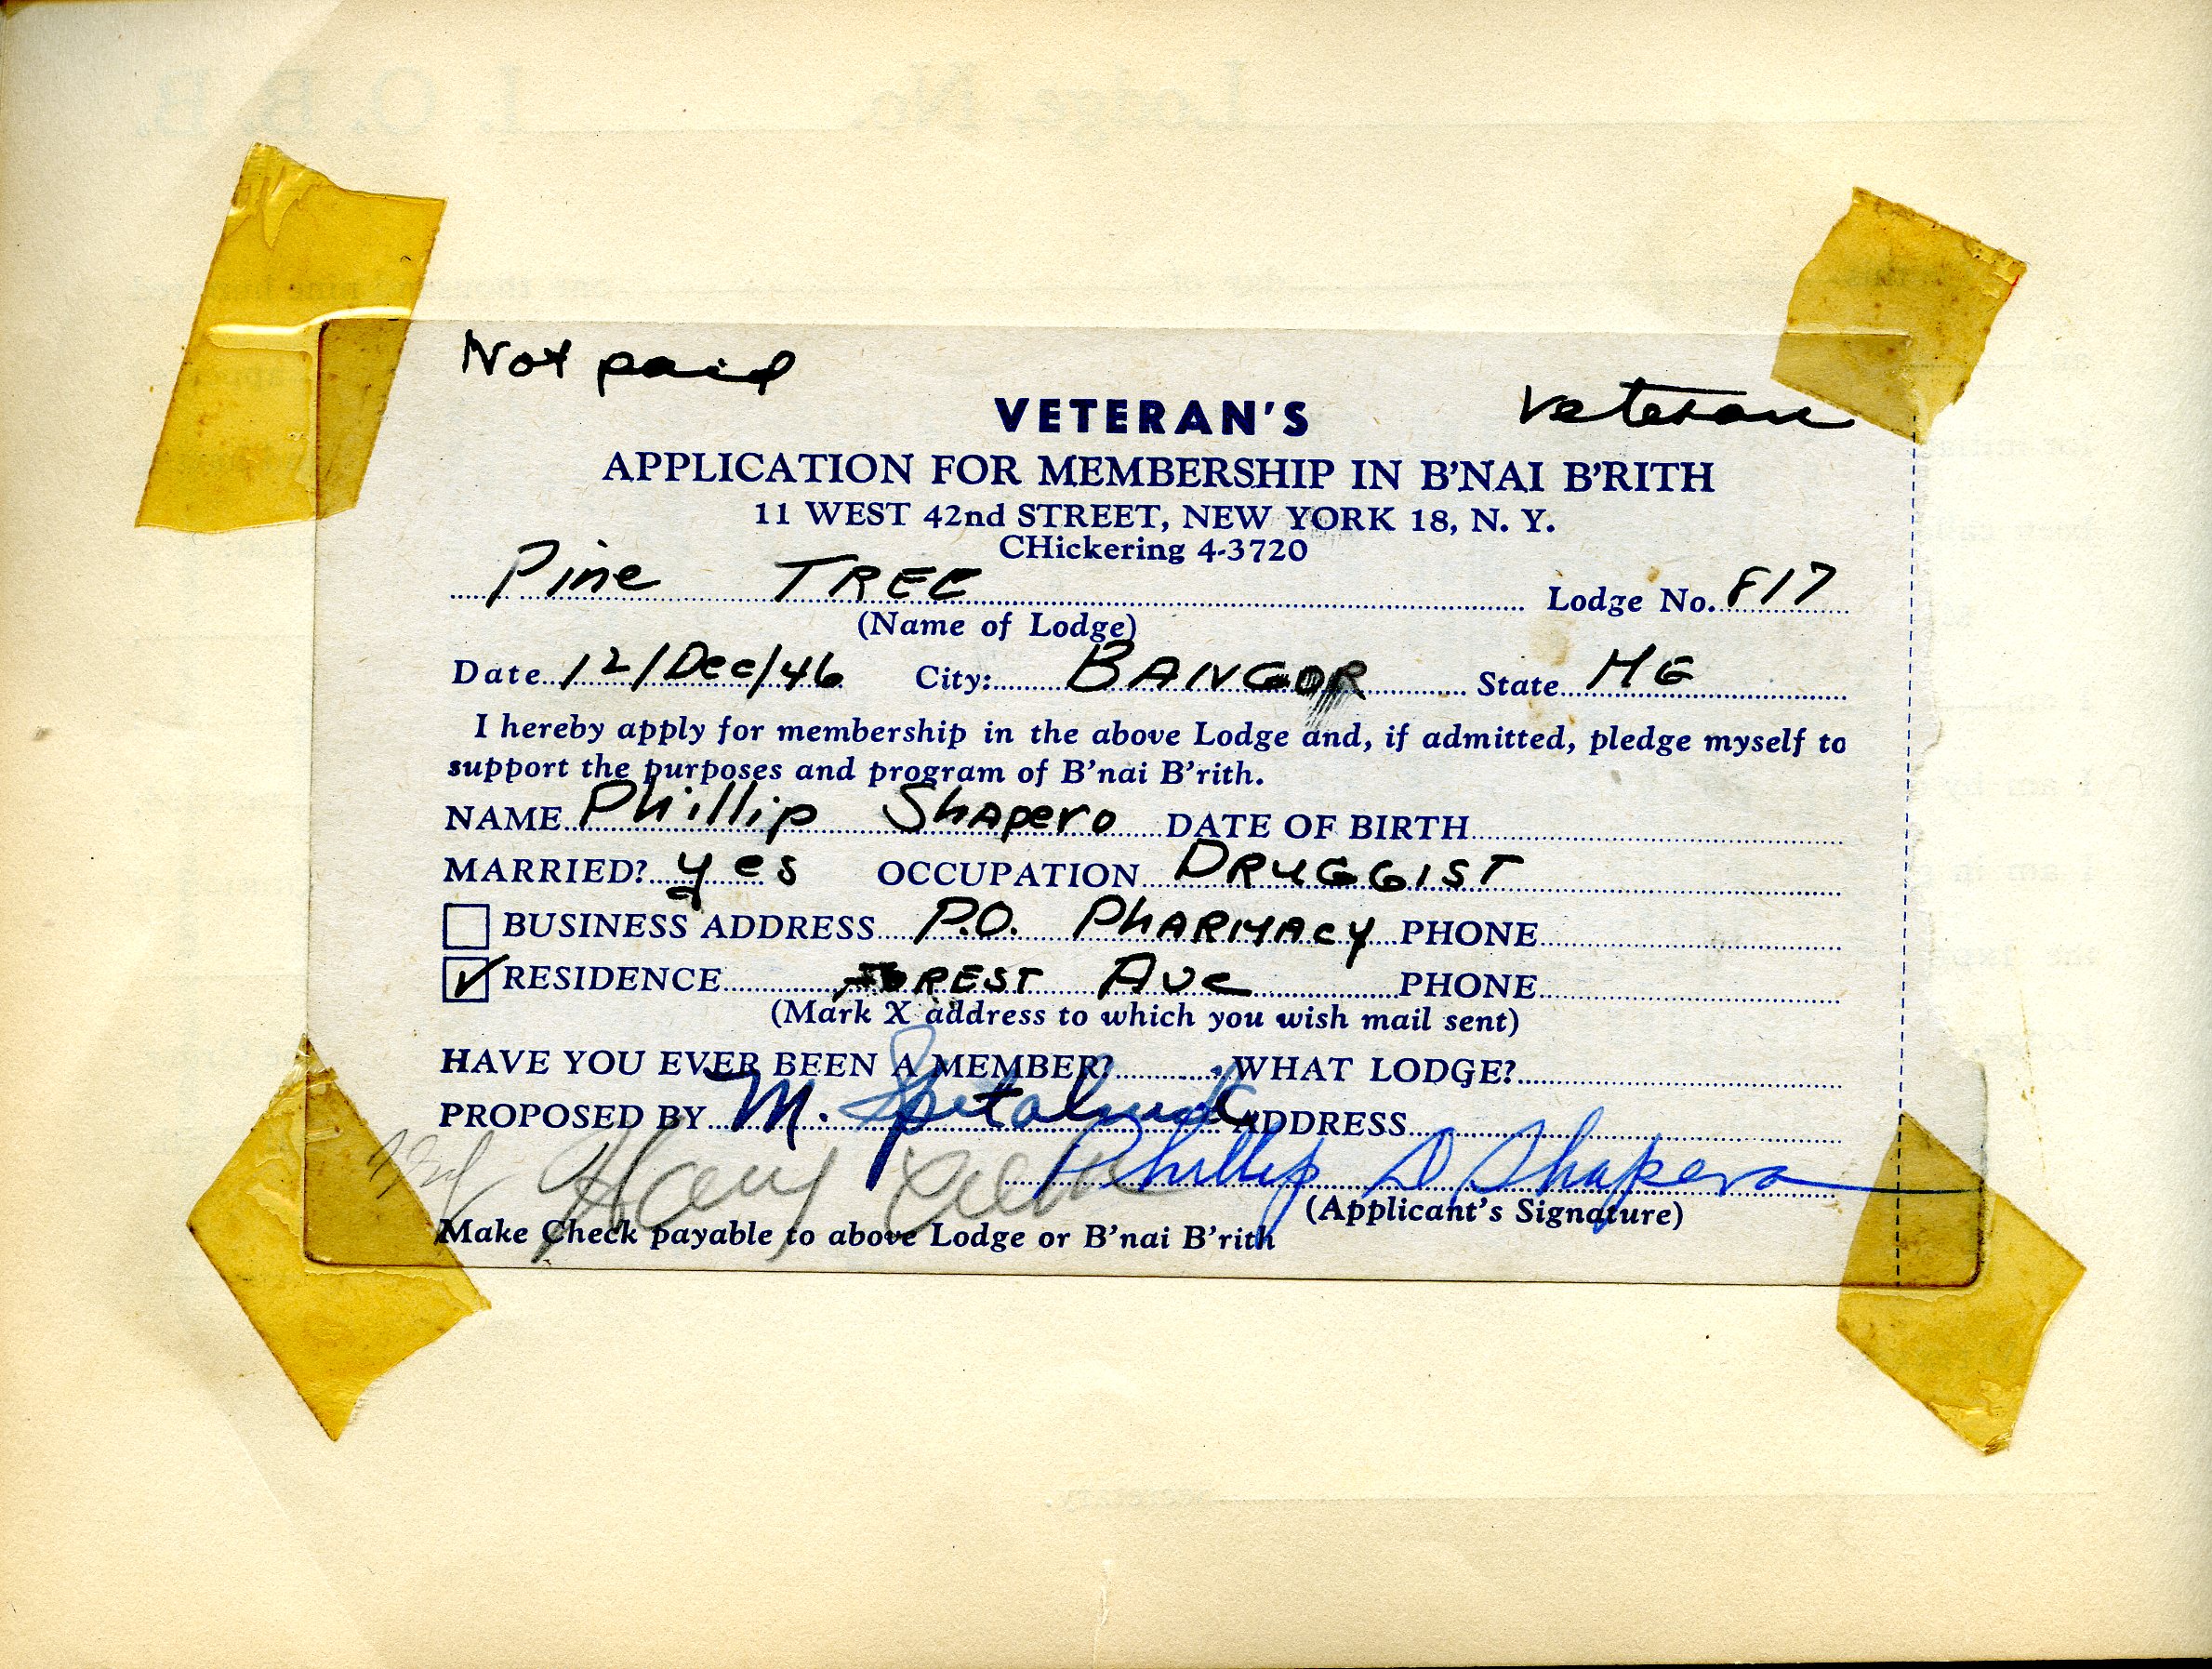 Not paid
veteran
VETERAN'S
APPLICATION FOR MEMBERSHIP IN B'NAI B'RITH
11 WEST 42nd STREET, NEW YORK 18, N. Y.
CHickering 4-3720
Pine TREE Lodge No. 817
(Name of Lodge)
Date 12/Dec/46 City: BANGOR State ME
I hereby apply for membership in the above Lodge and, if admitted, pledge myself to
support the purposes and program of B'nai B'rith.
NAME Phillip Shapero DATE OF BIRTH
MARRIED? yes OCCUPATION DRUGGIST
BUSINESS ADDRESS P.O. PHARMACY PHONE
✓ RESIDENCE FOREST Ave PHONE
(Mark X address to which you wish mail sent)
HAVE YOU EVER BEEN A MEMBER? WHAT LODGE?
PROPOSED BY M. ADDRESS
Harry
Phillip D Shapero
(Applicant's Signature)
Make Check payable to above Lodge or B'nai B'rith
Lodge, No. I. O. B. B.
day of one thousand nine hundred